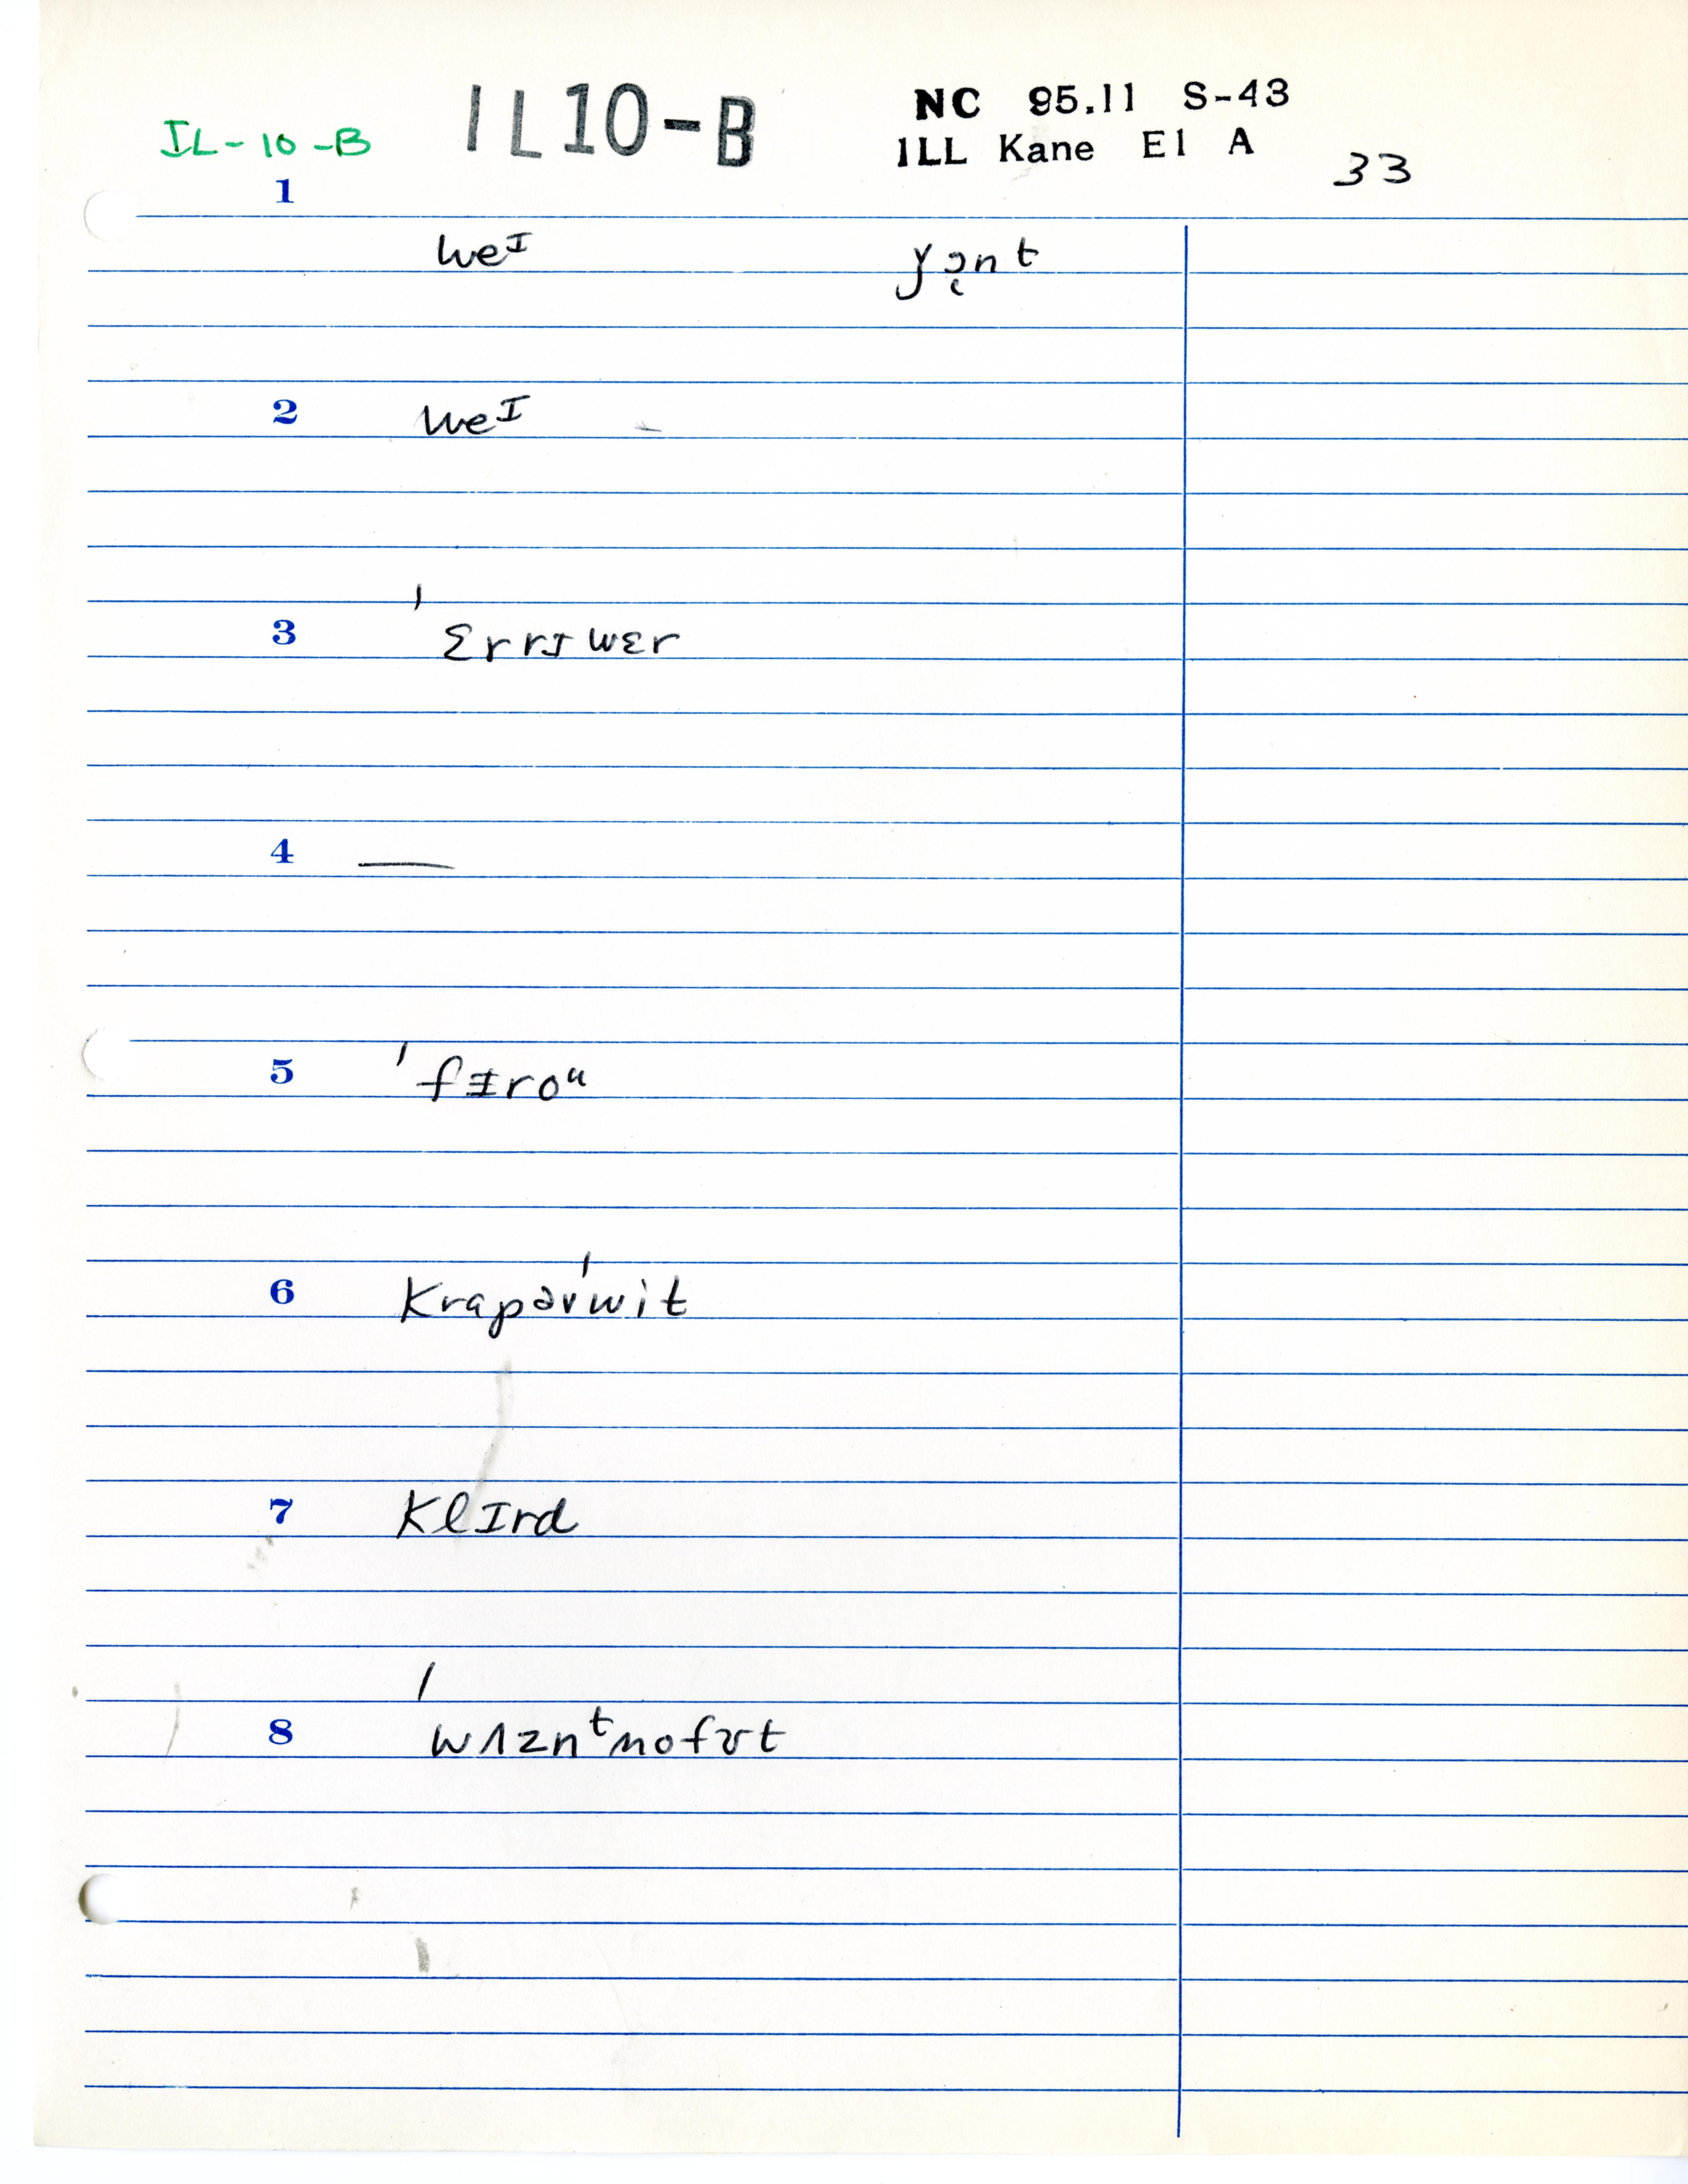 IL-10-B IL10-B NC 95.11 S-43
ILL Kane El A 33
1
weᴵ yə̨nt
2 weᴵ
3 ˈɛrrɪwɛr
4 —
5 ˈfɪroᵘ
6 krapəvˈwit
7 klɪrd
8 ˈwʌznᵗmofɤt